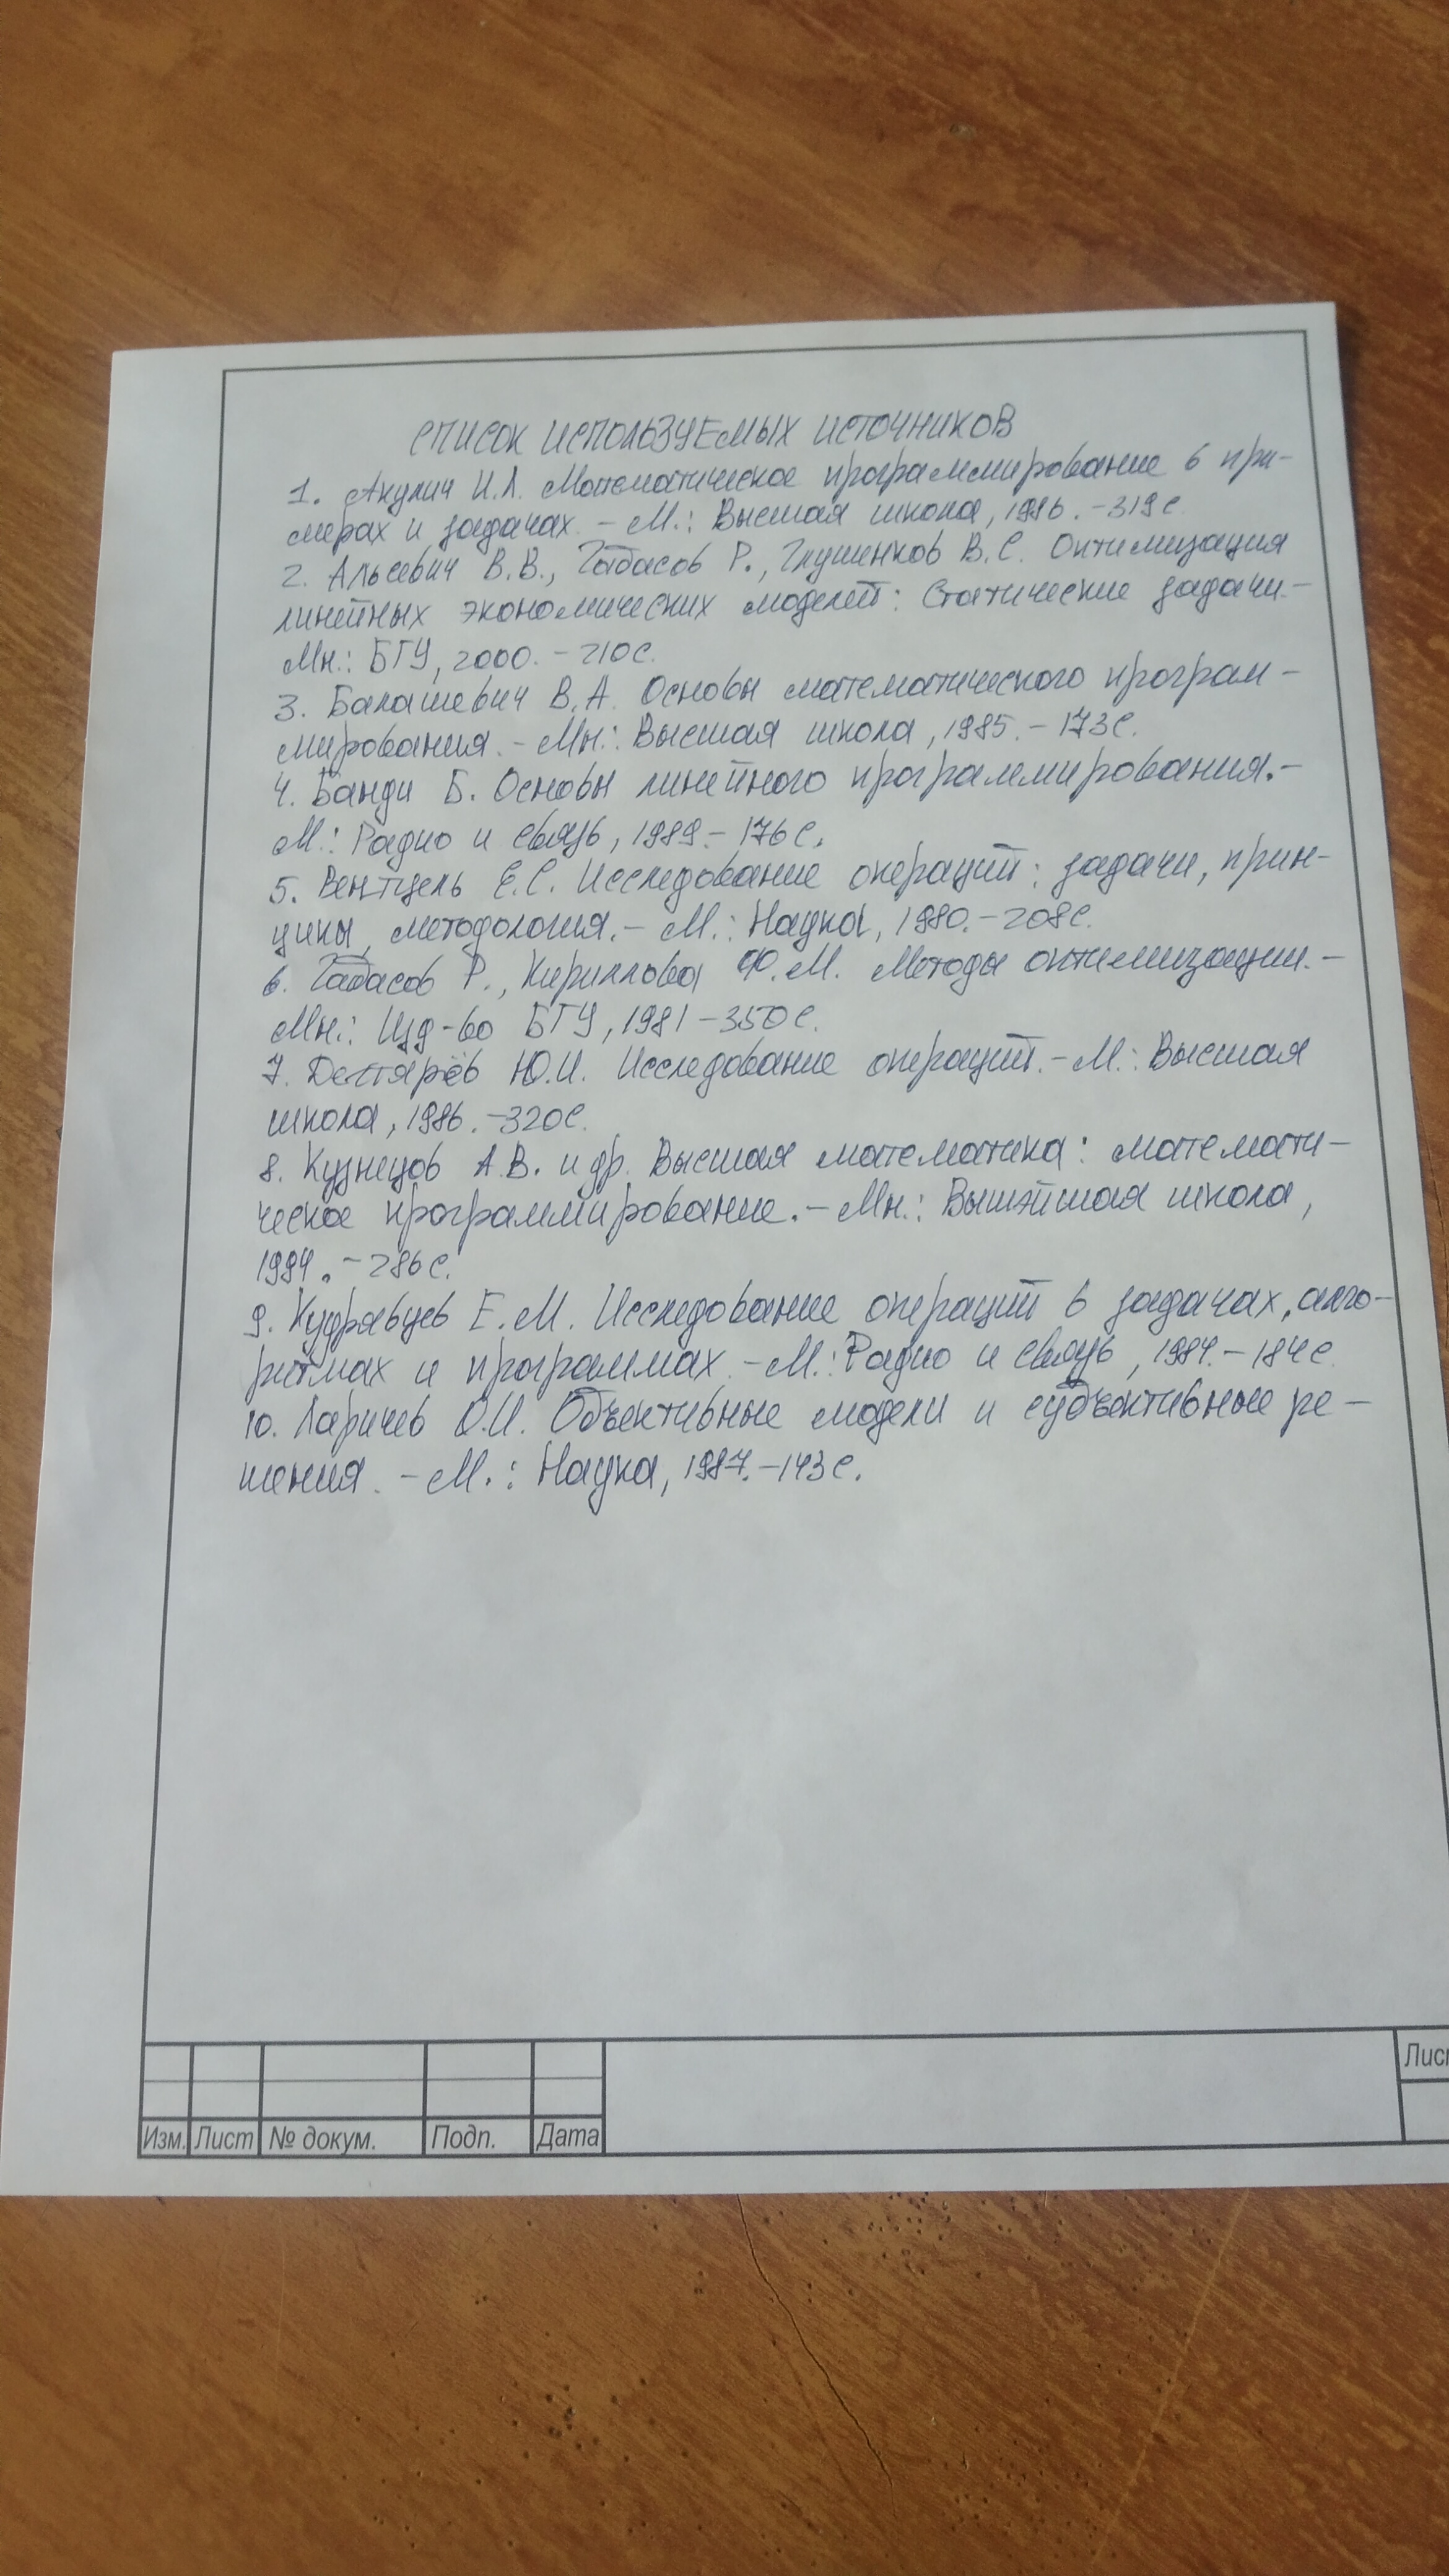 СПИСОК ИСПОЛЬЗУЕМЫХ ИСТОЧНИКОВ
1. Акулич И.Л. Математическое программирование в при-
мерах и задачах. – М.: Высшая школа, 1986. – 319с.
2. Альсевич В.В., Габасов Р., Глушенков В.С. Оптимизация
линейных экономических моделей: Статические задачи. –
Мн.: БГУ, 2000. – 210с.
3. Балашевич В.А. Основы математического програм-
мирования. – Мн.: Высшая школа, 1985. – 173с.
4. Банди Б. Основы линейного программирования. –
М.: Радио и связь, 1989. – 176с.
5. Вентцель Е.С. Исследование операций: задачи, прин-
ципы, методология. – М.: Наука, 1980. – 208с.
6. Габасов Р., Кириллова Ф.М. Методы оптимизации. –
Мн.: Изд-во БГУ, 1981 – 350с.
7. Дегтярёв Ю.И. Исследование операций. – М.: Высшая
школа, 1986. – 320с.
8. Кузнецов А.В. и др. Высшая математика: математи-
ческое программирование. – Мн.: Вышэйшая школа,
1994. – 286с.
9. Кудрявцев Е.М. Исследование операций в задачах, алго-
ритмах и программах. – М.: Радио и связь, 1984. – 184с.
10. Ларичев О.И. Объективные модели и субъективные ре-
шения. – М.: Наука, 1987. – 143с.
Лист
Изм. Лист № докум. Подп. Дата